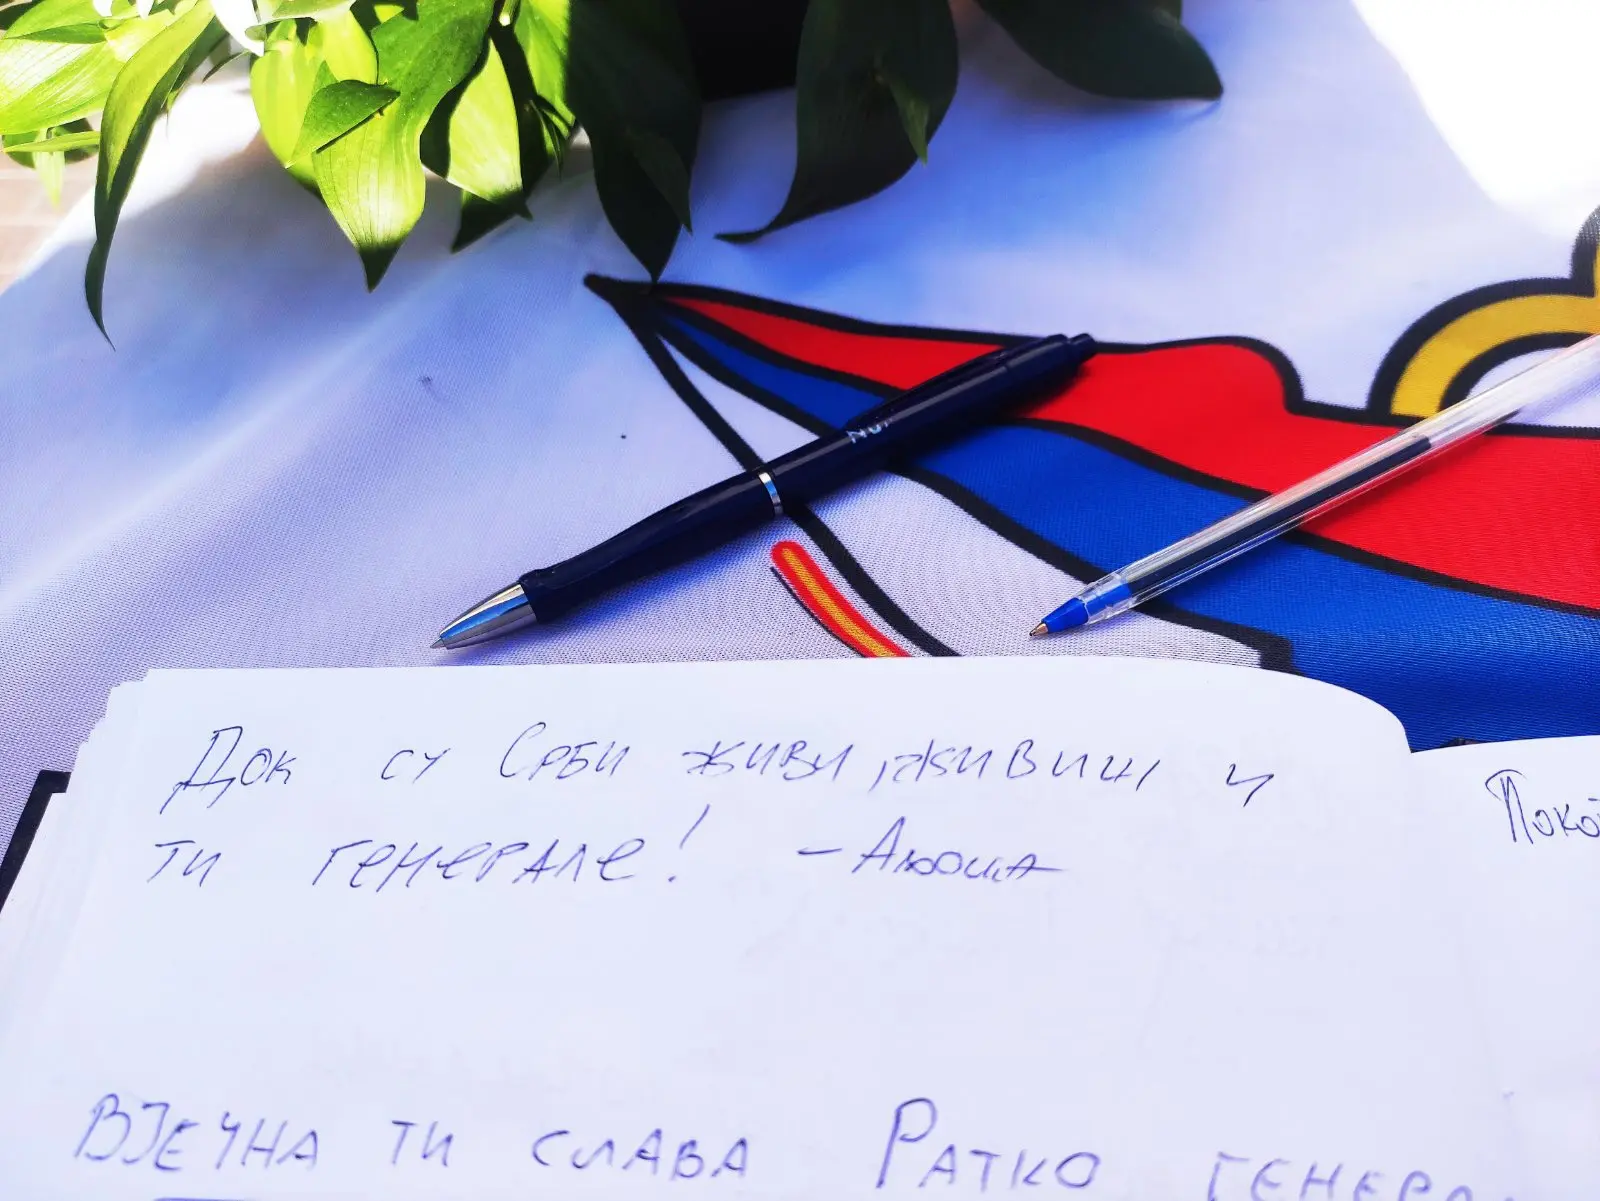 Док су Срби живи, живиш и
ти генерале! – Аљоша
Покој
Вјечна ти слава Ратко генера